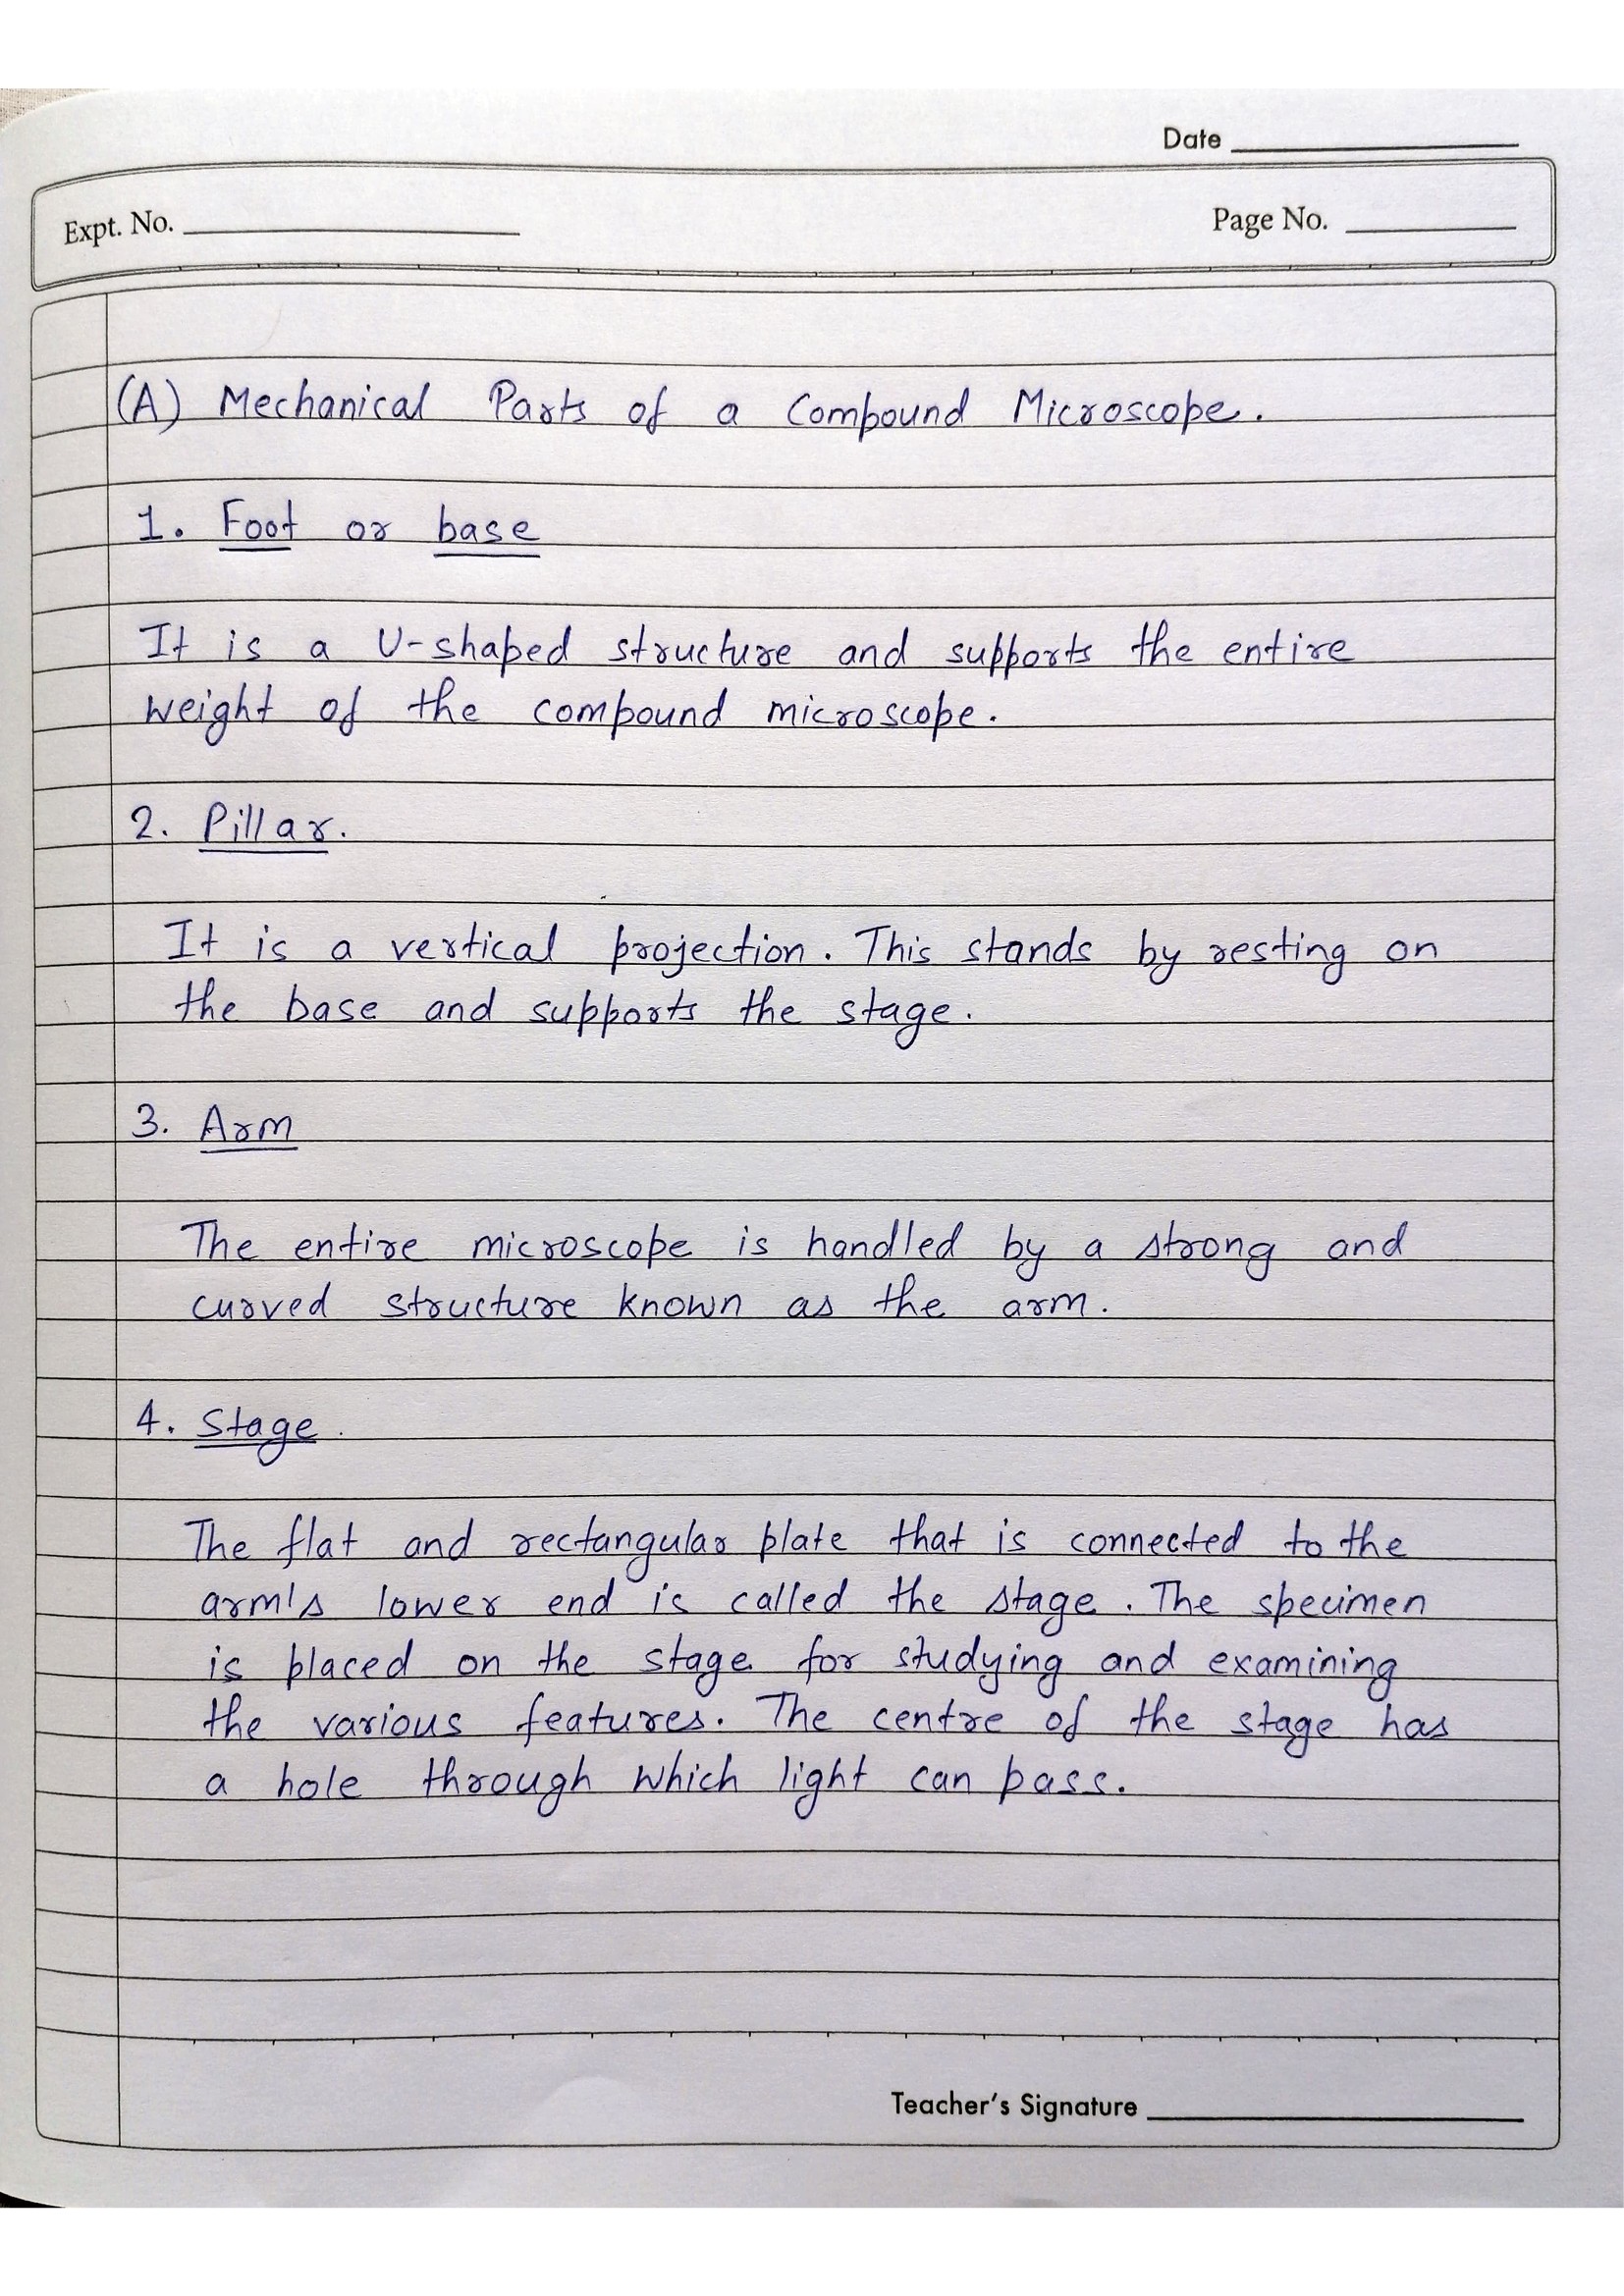 Date
Expt. No.
Page No.
(A) Mechanical Parts of a Compound Microscope.
1. Foot or base
It is a U-shaped structure and supports the entire
weight of the compound microscope.
2. Pillar.
It is a vertical projection. This stands by resting on
the base and supports the stage.
3. Arm
The entire microscope is handled by a strong and
curved structure known as the arm.
4. Stage.
The flat and rectangular plate that is connected to the
arm's lower end is called the stage. The specimen
is placed on the stage for studying and examining
the various features. The centre of the stage has
a hole through which light can pass.
Teacher's Signature